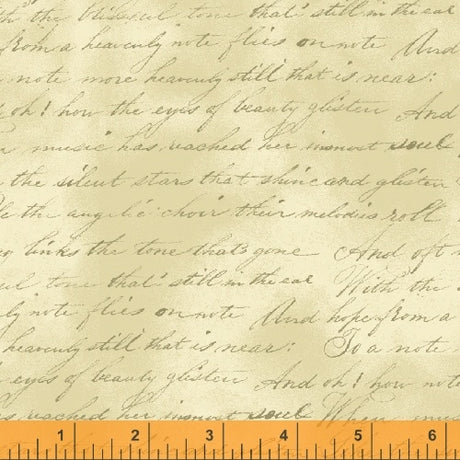 th the blissful tone that's still in the ear
from a heavenly note flies on note And
note more heavenly still that is near:
oh! how the eyes of beauty glisten And
music has reached her inmost soul
the silent stars that shine and glisten
the angelic choir their melodies roll
links the tone that's gone And oft
tone that's still in the ear With the
note flies on note And hope from a
heavenly still that is near: To a note
eyes of beauty glisten And oh! how
reached her inmost soul When music
1 2 3 4 5 6